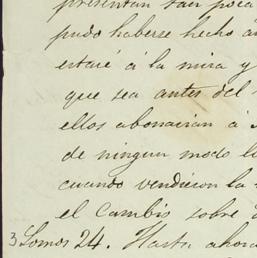 presentan tan poca
pudo haberse hecho an
estaré á la mira y
que sea antes del
ellos abonarian á
de ningun modo lo
cuando vendieron la
el Cambio sobre
3 Lomos 24. Hasta ahora